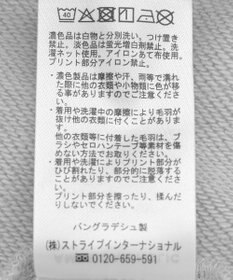 40
濃色品は白物と分別洗い、つけ置き
禁止。淡色品は蛍光増白剤禁止。洗
濯ネット使用。アイロンあて布使用。
プリント部分アイロン禁止。
・濃色製品は摩擦や汗、雨等で濡れ
た際に他の衣類や小物類に色が移
る事がありますのでご注意くださ
い。
・着用や洗濯中の摩擦により毛羽が
抜け他の衣類に付着する場合があ
ります。
他の衣類等に付着した毛羽は、ブ
ラシやセロハンテープ等素材を傷
めない方法でお取りください。
・着用や洗濯によりプリント部分が
ひび割れたり、部分的に脱落する
ことがありますのでご注意くださ
い。プリント部を擦ったり、揉んだ
りしないでください。
バングラデシュ製
(株)ストライプインターナショナル
0120-659-591